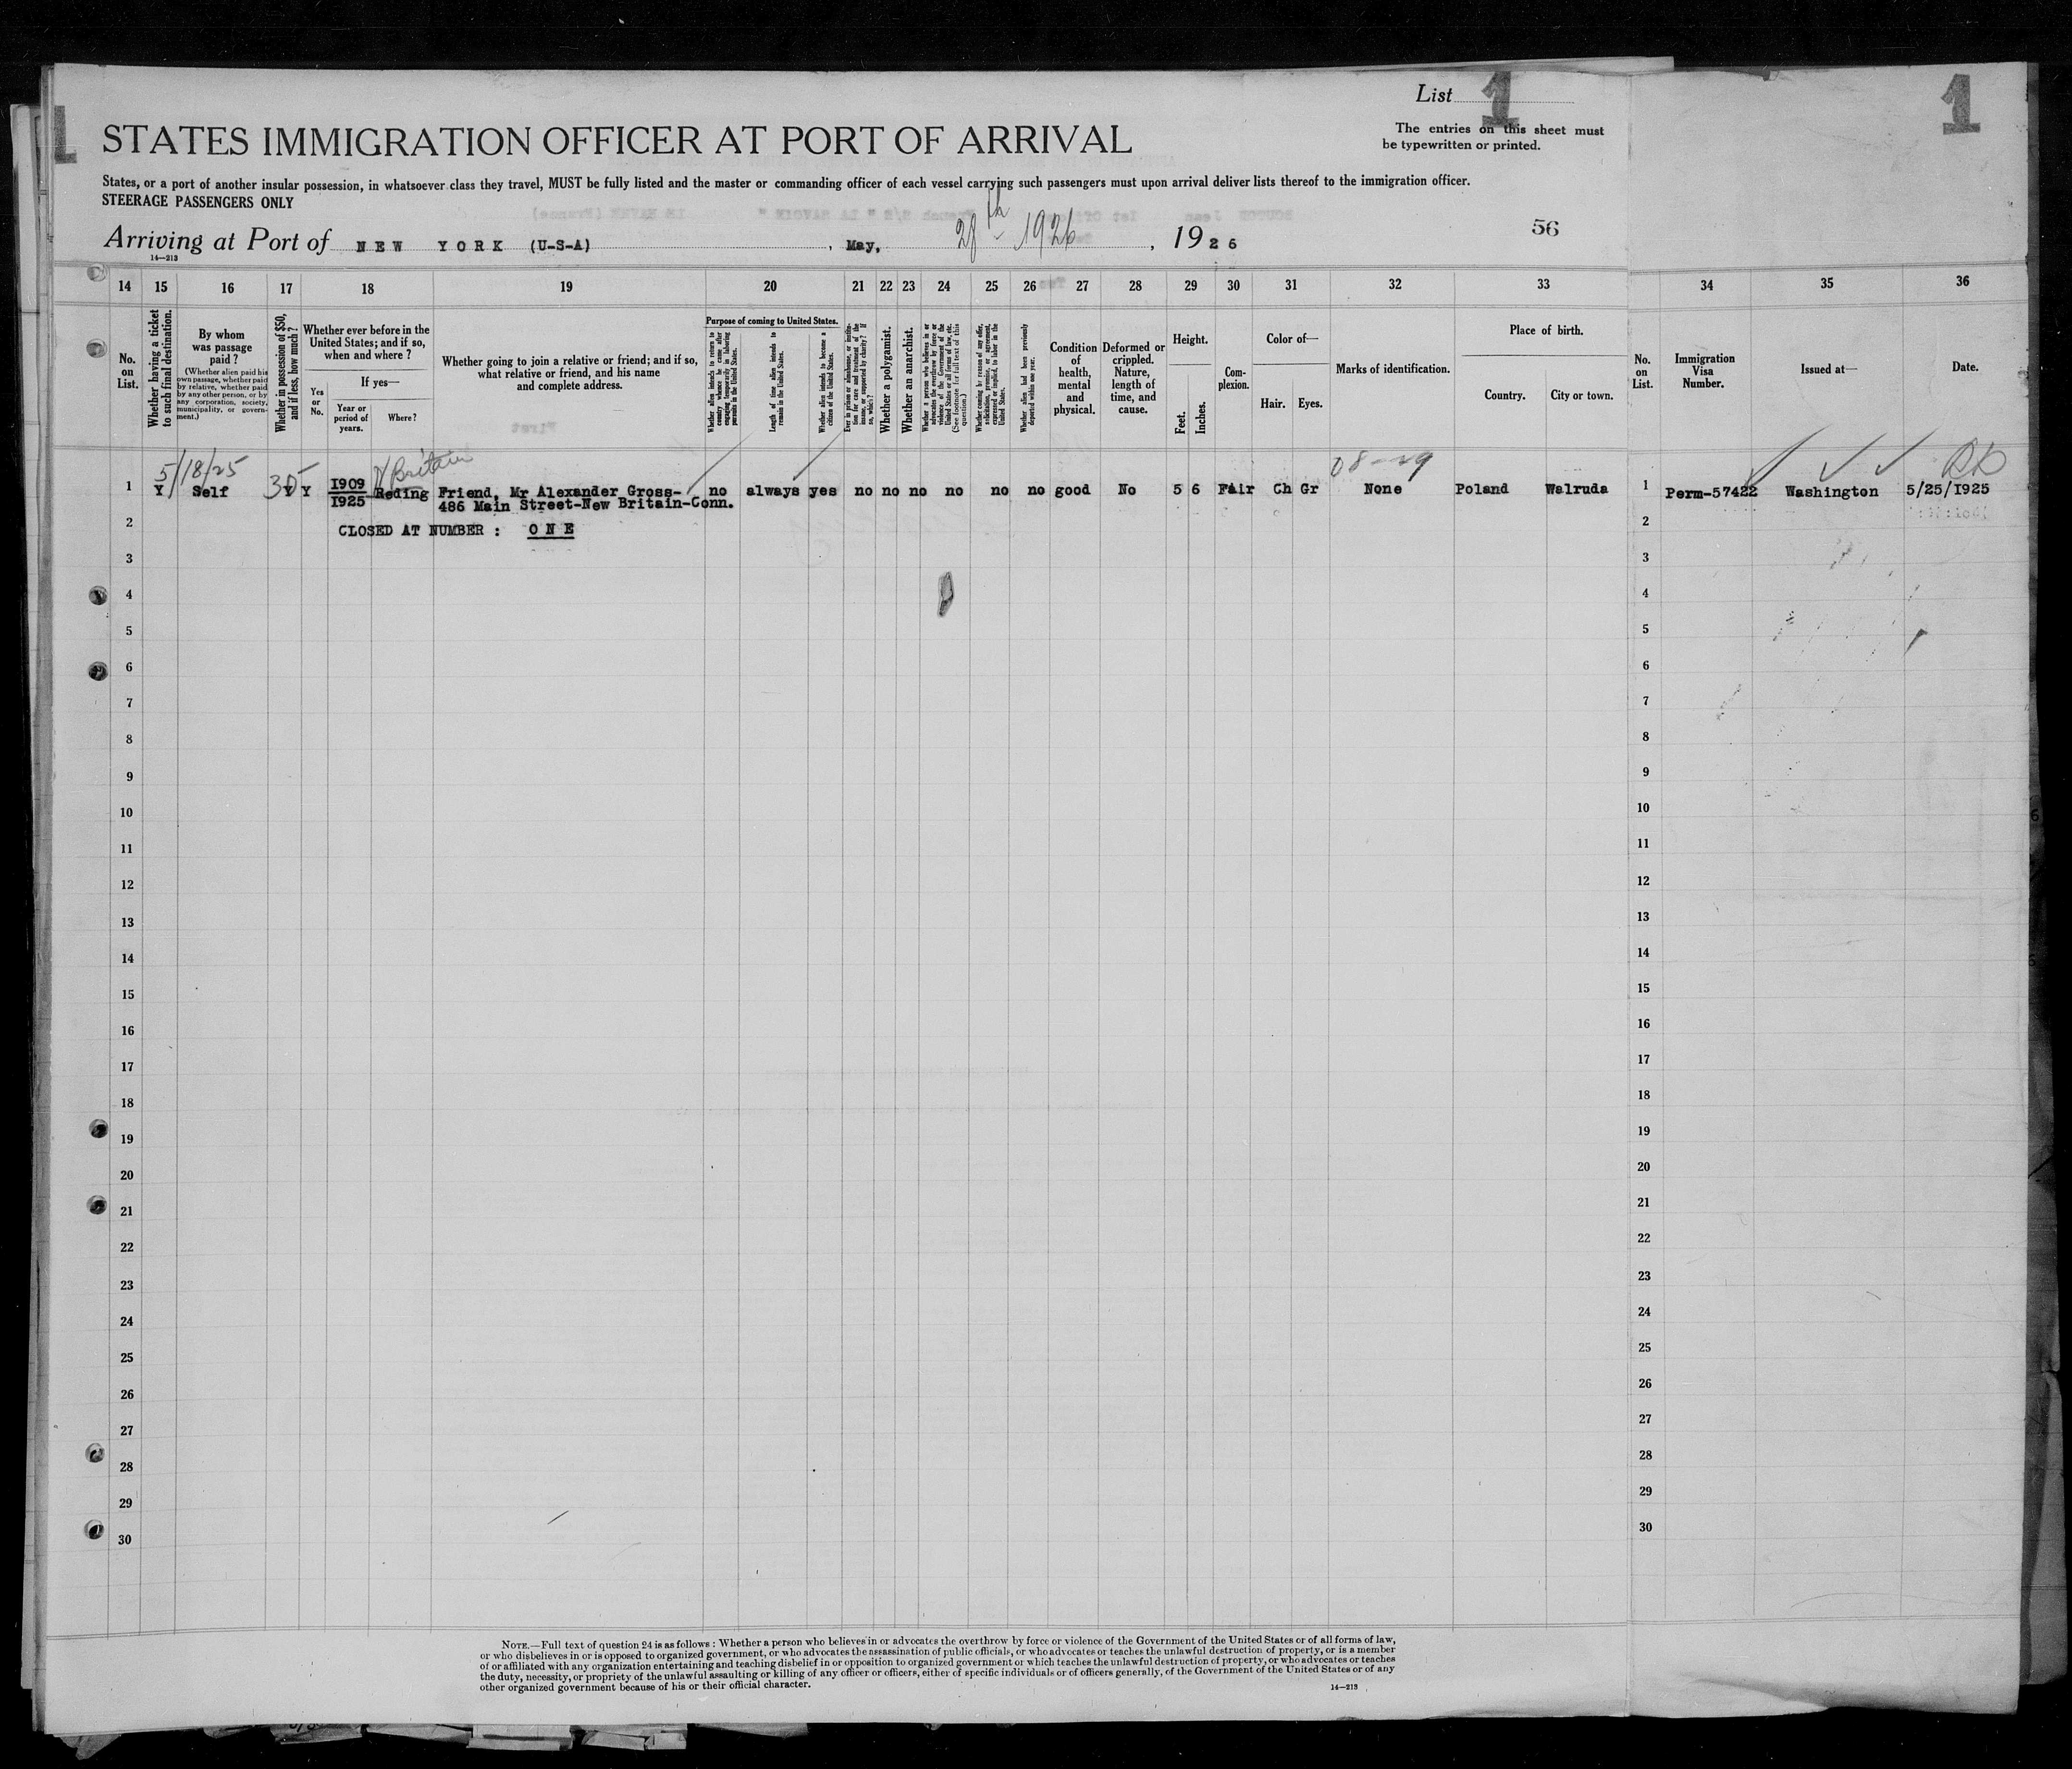 List 1
1
1
The entries on this sheet must
be typewritten or printed.
STATES IMMIGRATION OFFICER AT PORT OF ARRIVAL
States, or a port of another insular possession, in whatsoever class they travel, MUST be fully listed and the master or commanding officer of each vessel carrying such passengers must upon arrival deliver lists thereof to the immigration officer.
STEERAGE PASSENGERS ONLY
Arriving at Port of NEW YORK (U-S-A) , May, 28th 1926 , 1926
56
14—213
14 15 16 17 18 19 20 21 22 23 24 25 26 27 28 29 30 31 32 33 34 35 36
No. on List.
Whether having a ticket to such final destination.
By whom was passage paid?
(Whether alien paid his own passage, whether paid by relative, whether paid by any other person, or by any corporation, society, municipality, or government.)
Whether in possession of $50, and if less, how much?
Whether ever before in the United States; and if so, when and where?
Yes or No.
If yes—
Year or period of years.
Where?
Whether going to join a relative or friend; and if so, what relative or friend, and his name and complete address.
Purpose of coming to United States.
Whether alien intends to return to country whence he came after engaging temporarily in laboring pursuits in the United States.
Length of time alien intends to remain in the United States.
Whether alien intends to become a citizen of the United States.
Ever in prison or almshouse, or institution for care and treatment of the insane, or supported by charity? If so, which?
Whether a polygamist.
Whether an anarchist.
Whether a person who believes in or advocates the overthrow by force or violence of the Government of the United States or all forms of law, etc. (See footnote for full text of this question.)
Whether coming by reason of any offer, solicitation, promise, or agreement, expressed or implied, to labor in the United States.
Whether alien had been previously deported within one year.
Condition of health, mental and physical.
Deformed or crippled. Nature, length of time, and cause.
Height.
Feet. Inches.
Complexion.
Color of—
Hair. Eyes.
Marks of identification.
Place of birth.
Country. City or town.
No. on List.
Immigration Visa Number.
Issued at—
Date.
5/18/25 N Britain 08-29
1 Y Self Y Y 1909 1925 Reding Friend, Mr Alexander Gross- no always yes no no no no no no good No 5 6 FAir Ch Gr None Poland Walruda 1 Perm-57422 Washington 5/25/1925
486 Main Street-New Britain-Conn.
2 CLOSED AT NUMBER : ONE 2
3 3
4 4
5 5
6 6
7 7
8 8
9 9
10 10
11 11
12 12
13 13
14 14
15 15
16 16
17 17
18 18
19 19
20 20
21 21
22 22
23 23
24 24
25 25
26 26
27 27
28 28
29 29
30 30
NOTE.—Full text of question 24 is as follows: Whether a person who believes in or advocates the overthrow by force or violence of the Government of the United States or of all forms of law,
or who disbelieves in or is opposed to organized government, or who advocates the assassination of public officials, or who advocates or teaches the unlawful destruction of property, or is a member
of or affiliated with any organization entertaining and teaching disbelief in or opposition to organized government or which teaches the unlawful destruction of property, or who advocates or teaches
the duty, necessity, or propriety of the unlawful assaulting or killing of any officer or officers, either of specific individuals or of officers generally, of the Government of the United States or of any
other organized government because of his or their official character.
14—213